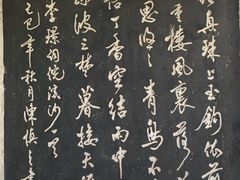 真珠上玉鉤依前
重樓風裏落
思悠悠青鳥不
丁香空結雨中
波三楚暮接天
李璟浣溪沙
巳年秋月陳慎之